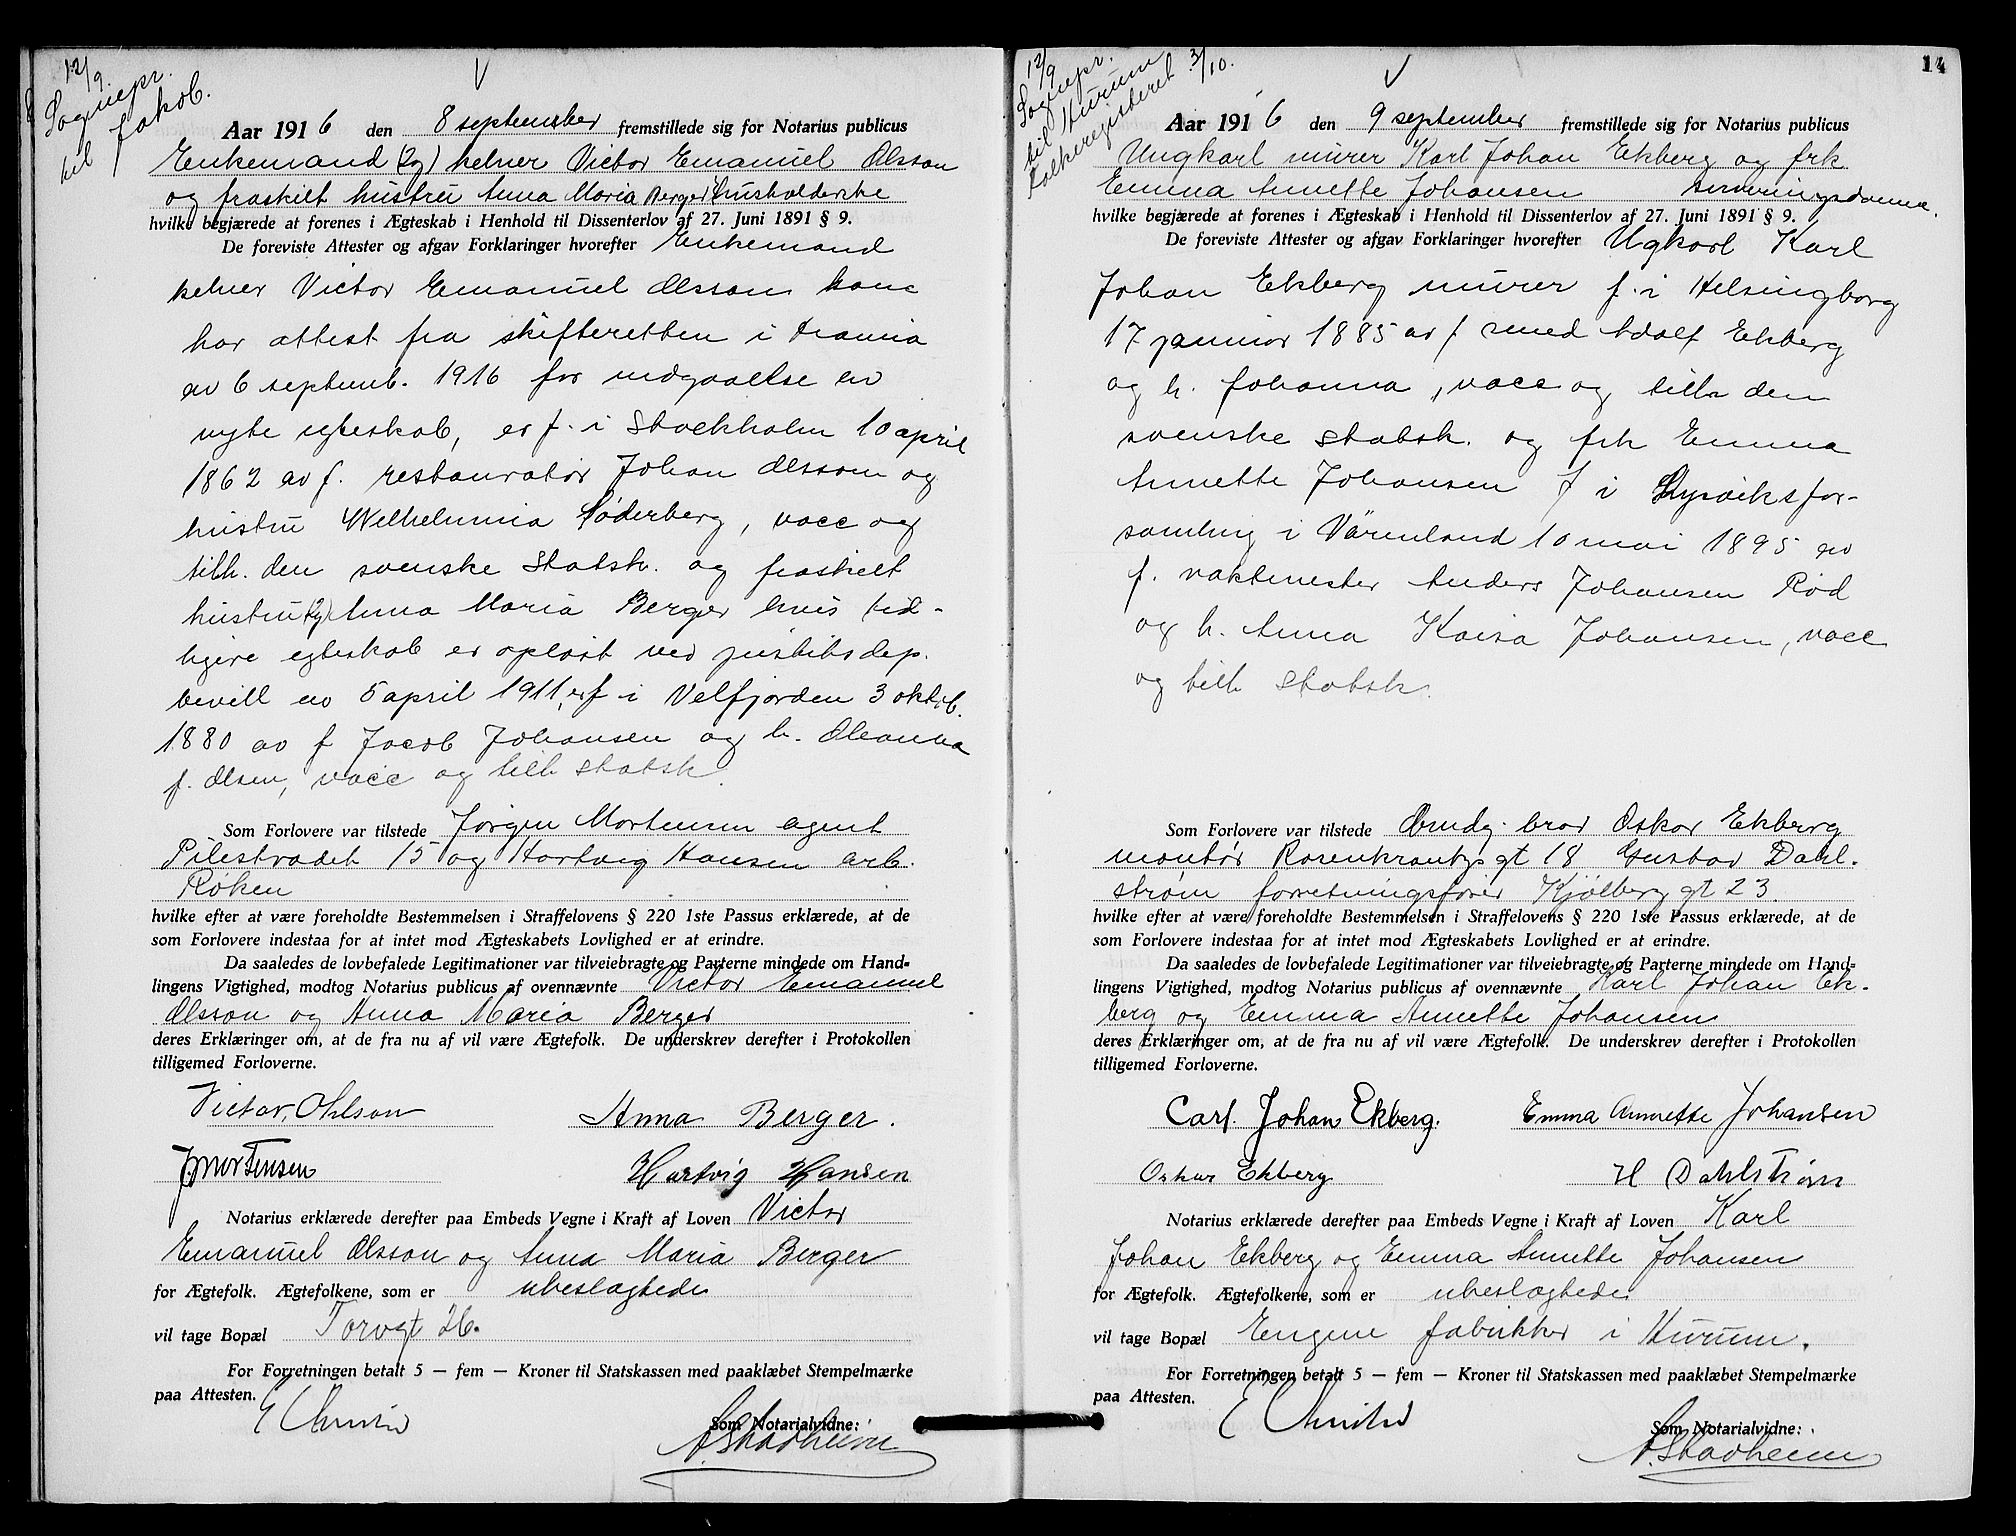 12/9.
Sognepr.
til Jakob.
Aar 1916 den 8 september fremstillede sig for Notarius publicus
Enkemand (2g) kelner Victor Emanuel Olsson
og fraskilt hustru Anna Maria Berger, husholderske
hvilke begjærede at forenes i Ægteskab i Henhold til Dissenterlov af 27. Juni 1891 § 9.
De foreviste Attester og afgav Forklaringer hvorefter Enkemand
kelner Victor Emanuel Olsson
har attest fra skifteretten i
av 6 septemb. 1916 for indgaaelse av
nyt egteskab, er f. i Stockholm 10 april
1862 av f. restauratør Johan Olsson og
hustru Wilhelmina Søderberg, vacc og
tilh. den svenske Statsk. og fraskilt
hustru (2g) Anna Maria Berger hvis tid-
ligere egteskab er opløst ved justitsdep.
bevill av 5 april 1911, er f i Velfjorden 3 oktob.
1880 av f Jacob Johansen og h. Oleanna
f. Olsen, vacc og tilh Statsk.
Som Forlovere var tilstede Jørgen Mortensen agent
Pilestrædet 15 og Hartvig Hansen arb.
Røken
hvilke efter at være foreholdte Bestemmelsen i Straffelovens § 220 1ste Passus erklærede, at de
som Forlovere indestaa for at intet mod Ægteskabets Lovlighed er at erindre.
Da saaledes de lovbefalede Legitimationer var tilveiebragte og Parterne mindede om Hand-
lingens Vigtighed, modtog Notarius publicus af ovennævnte Victor Emanuel
Olsson og Anna Maria Berger
deres Erklæringer om, at de fra nu af vil være Ægtefolk. De underskrev derefter i Protokollen
tilligemed Forloverne.
Victor, Ohlson Anna Berger.
J Mortensen Hartvig Hansen
Notarius erklærede derefter paa Embeds Vegne i Kraft af Loven Victor
Emanuel Olsson og Anna Maria Berger
for Ægtefolk. Ægtefolkene, som er ubeslægtede
vil tage Bopæl Torvgt 26.
For Forretningen betalt 5 — fem — Kroner til Statskassen med paaklæbet Stempelmærke
paa Attesten.
Som Notarialvidne:
A. Stadheim
14
12/9
Sognepr.
til Hurum
Folkeregisteret 3/10.
Aar 1916 den 9 september fremstillede sig for Notarius publicus
Ungkarl murer Karl Johan Ekberg og frk
Emma Annette Johansen serveringsdame.
hvilke begjærede at forenes i Ægteskab i Henhold til Dissenterlov af 27. Juni 1891 § 9.
De foreviste Attester og afgav Forklaringer hvorefter Ugkarl Karl
Johan Ekberg murer f. i Helsingborg
17 januar 1885 av f smed Adolf Ekberg
og h. Johanna, vacc og tilh den
svenske statsk. og frk Emma
Annette Johansen f i Lysviksfor-
samling i Värmland 10 mai 1895 av
f. vaktmester Anders Johansen Rød
og h. Anna Kaisa Johansen, vacc
og tilh Statsk.
Som Forlovere var tilstede Brudg. bror Oskar Ekberg
montør Rosenkrantzgt 18 Gustav Dahl-
strøm forretningsfører Kjølberg gt 23.
hvilke efter at være foreholdte Bestemmelsen i Straffelovens § 220 1ste Passus erklærede, at de
som Forlovere indestaa for at intet mod Ægteskabets Lovlighed er at erindre.
Da saaledes de lovbefalede Legitimationer var tilveiebragte og Parterne mindede om Hand-
lingens Vigtighed, modtog Notarius publicus af ovennævnte Karl Johan Ek-
berg og Emma Annette Johansen
deres Erklæringer om, at de fra nu af vil være Ægtefolk. De underskrev derefter i Protokollen
tilligemed Forloverne.
Carl. Johan Ekberg. Emma Annette Johansen
Oskar Ekberg H Dahlstrøm
Notarius erklærede derefter paa Embeds Vegne i Kraft af Loven Karl
Johan Ekberg og Emma Annette Johansen
for Ægtefolk. Ægtefolkene, som er ubeslægtede
vil tage Bopæl Engene fabrikker i Hurum.
For Forretningen betalt 5 — fem — Kroner til Statskassen med paaklæbet Stempelmærke
paa Attesten.
Som Notarialvidne:
A. Stadheim